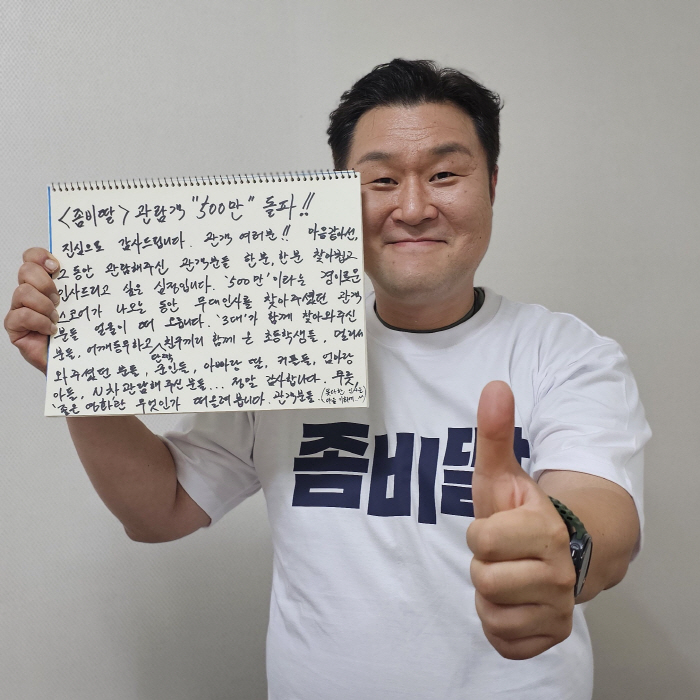 <좀비딸> 관람객 "500만" 돌파!!
진심으로 감사드립니다. 관객 여러분!! 마음같아선,
그동안 관람해주신 관객분들 한분, 한분 찾아뵙고
인사드리고 싶은 심정입니다. '500만'이라는 경이로운
스코어가 나오는 동안 무대인사를 찾아주셨던 관객
분들 얼굴이 떠 오릅니다. '3대'가 함께 찾아와주신
분들, 어깨동무하고 단짝친구끼리 함께 온 초등학생들, 멀리서
와주셨던 분들, 군인들, 아빠랑 딸, 커플들, 엄마랑
아들, N차관람해주신분들... 정말 감사합니다. 무릇,
'좋은 영화란 무엇인가 떠올려봅니다. 관객분들
좀비딸